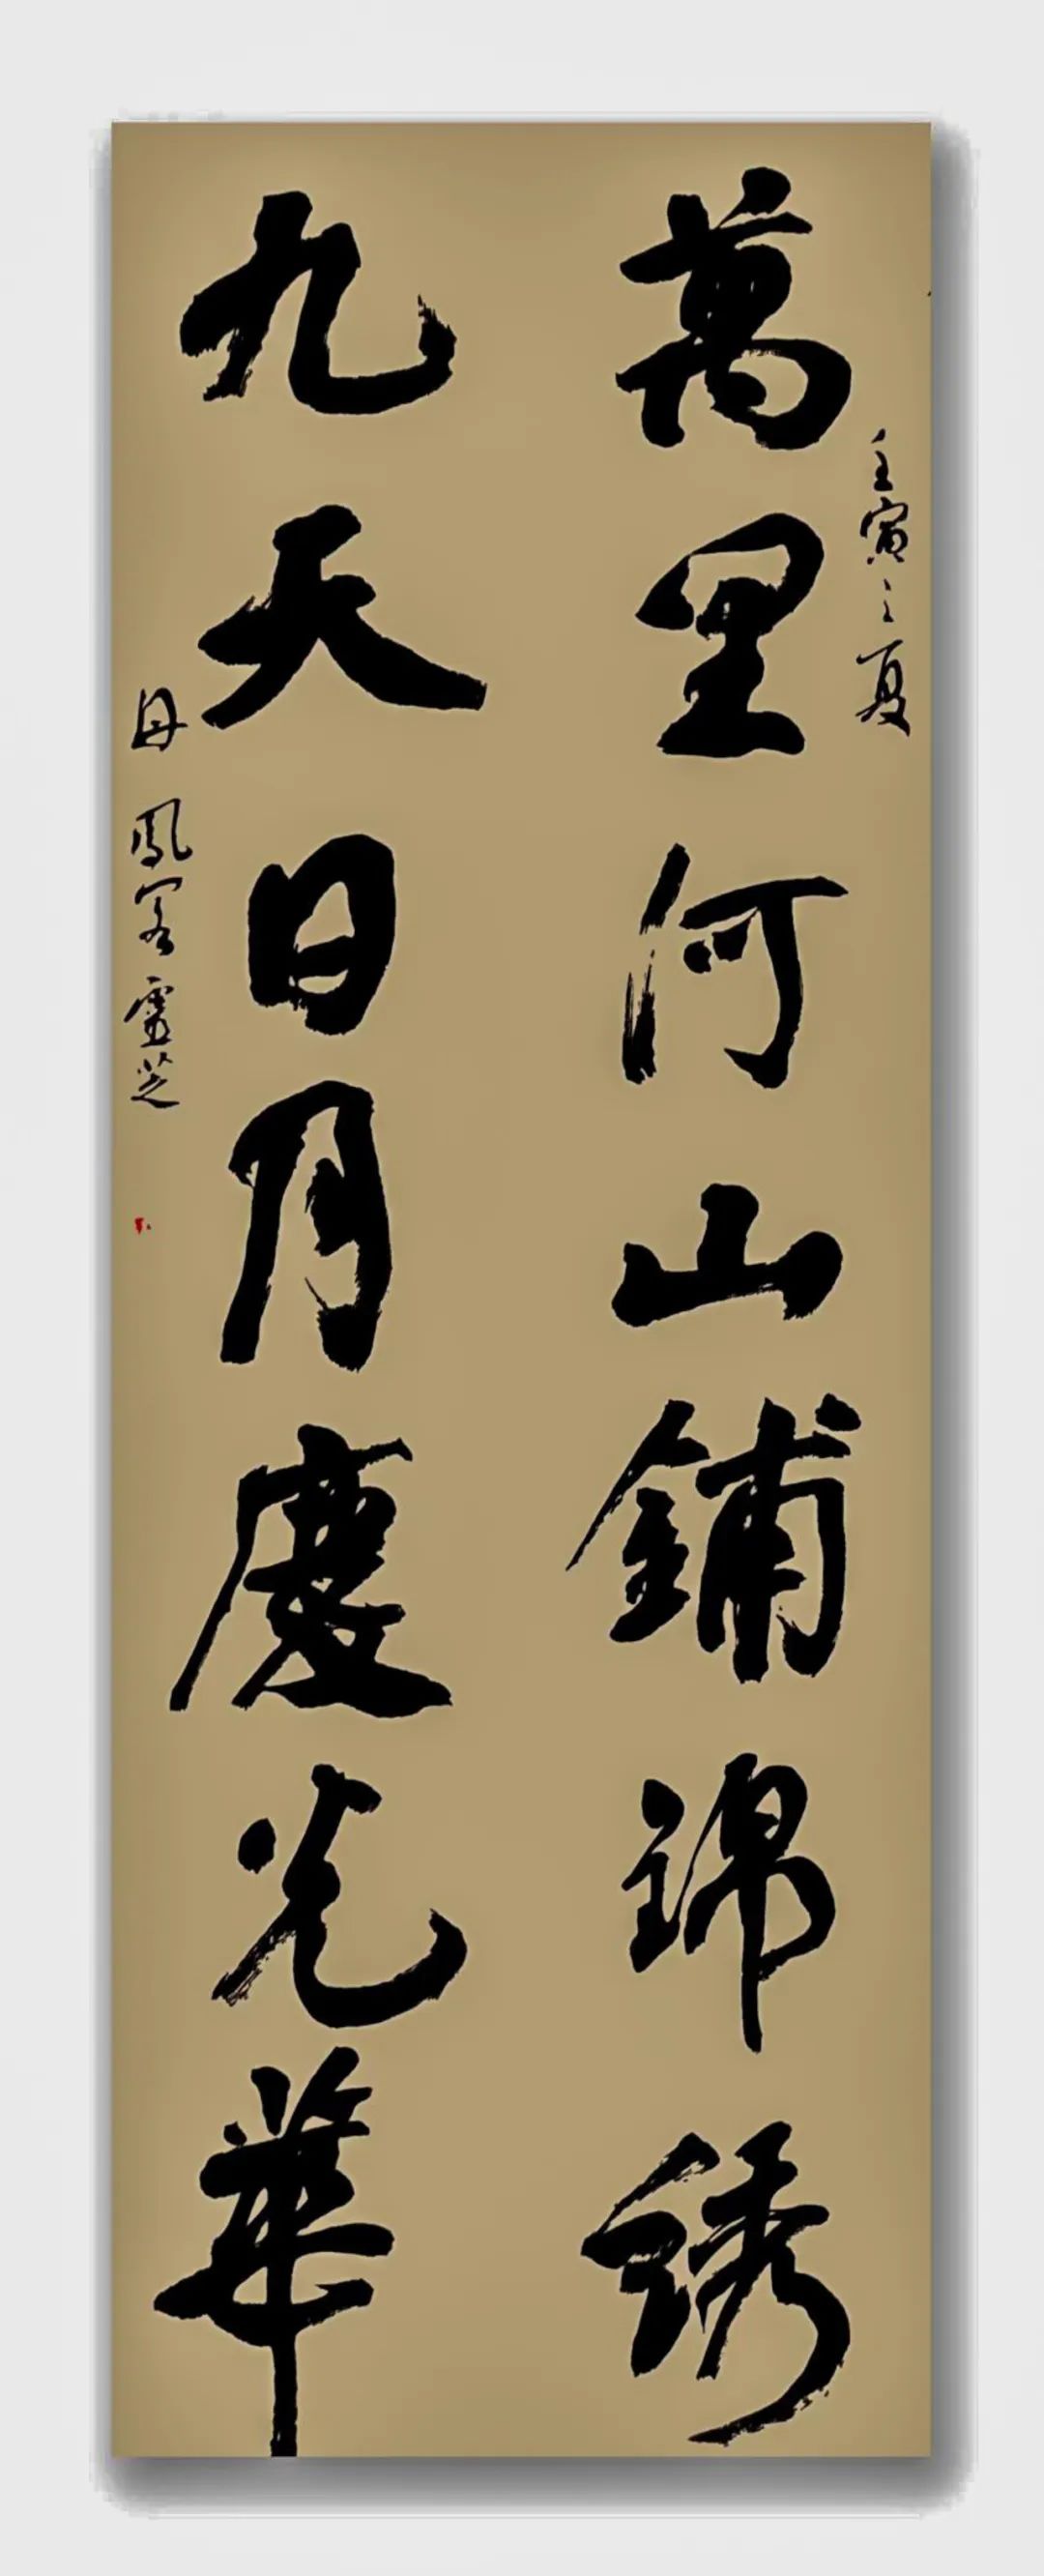 萬里河山鋪錦綉
壬寅之夏
九天日月慶光華
丹鳳客靈芝